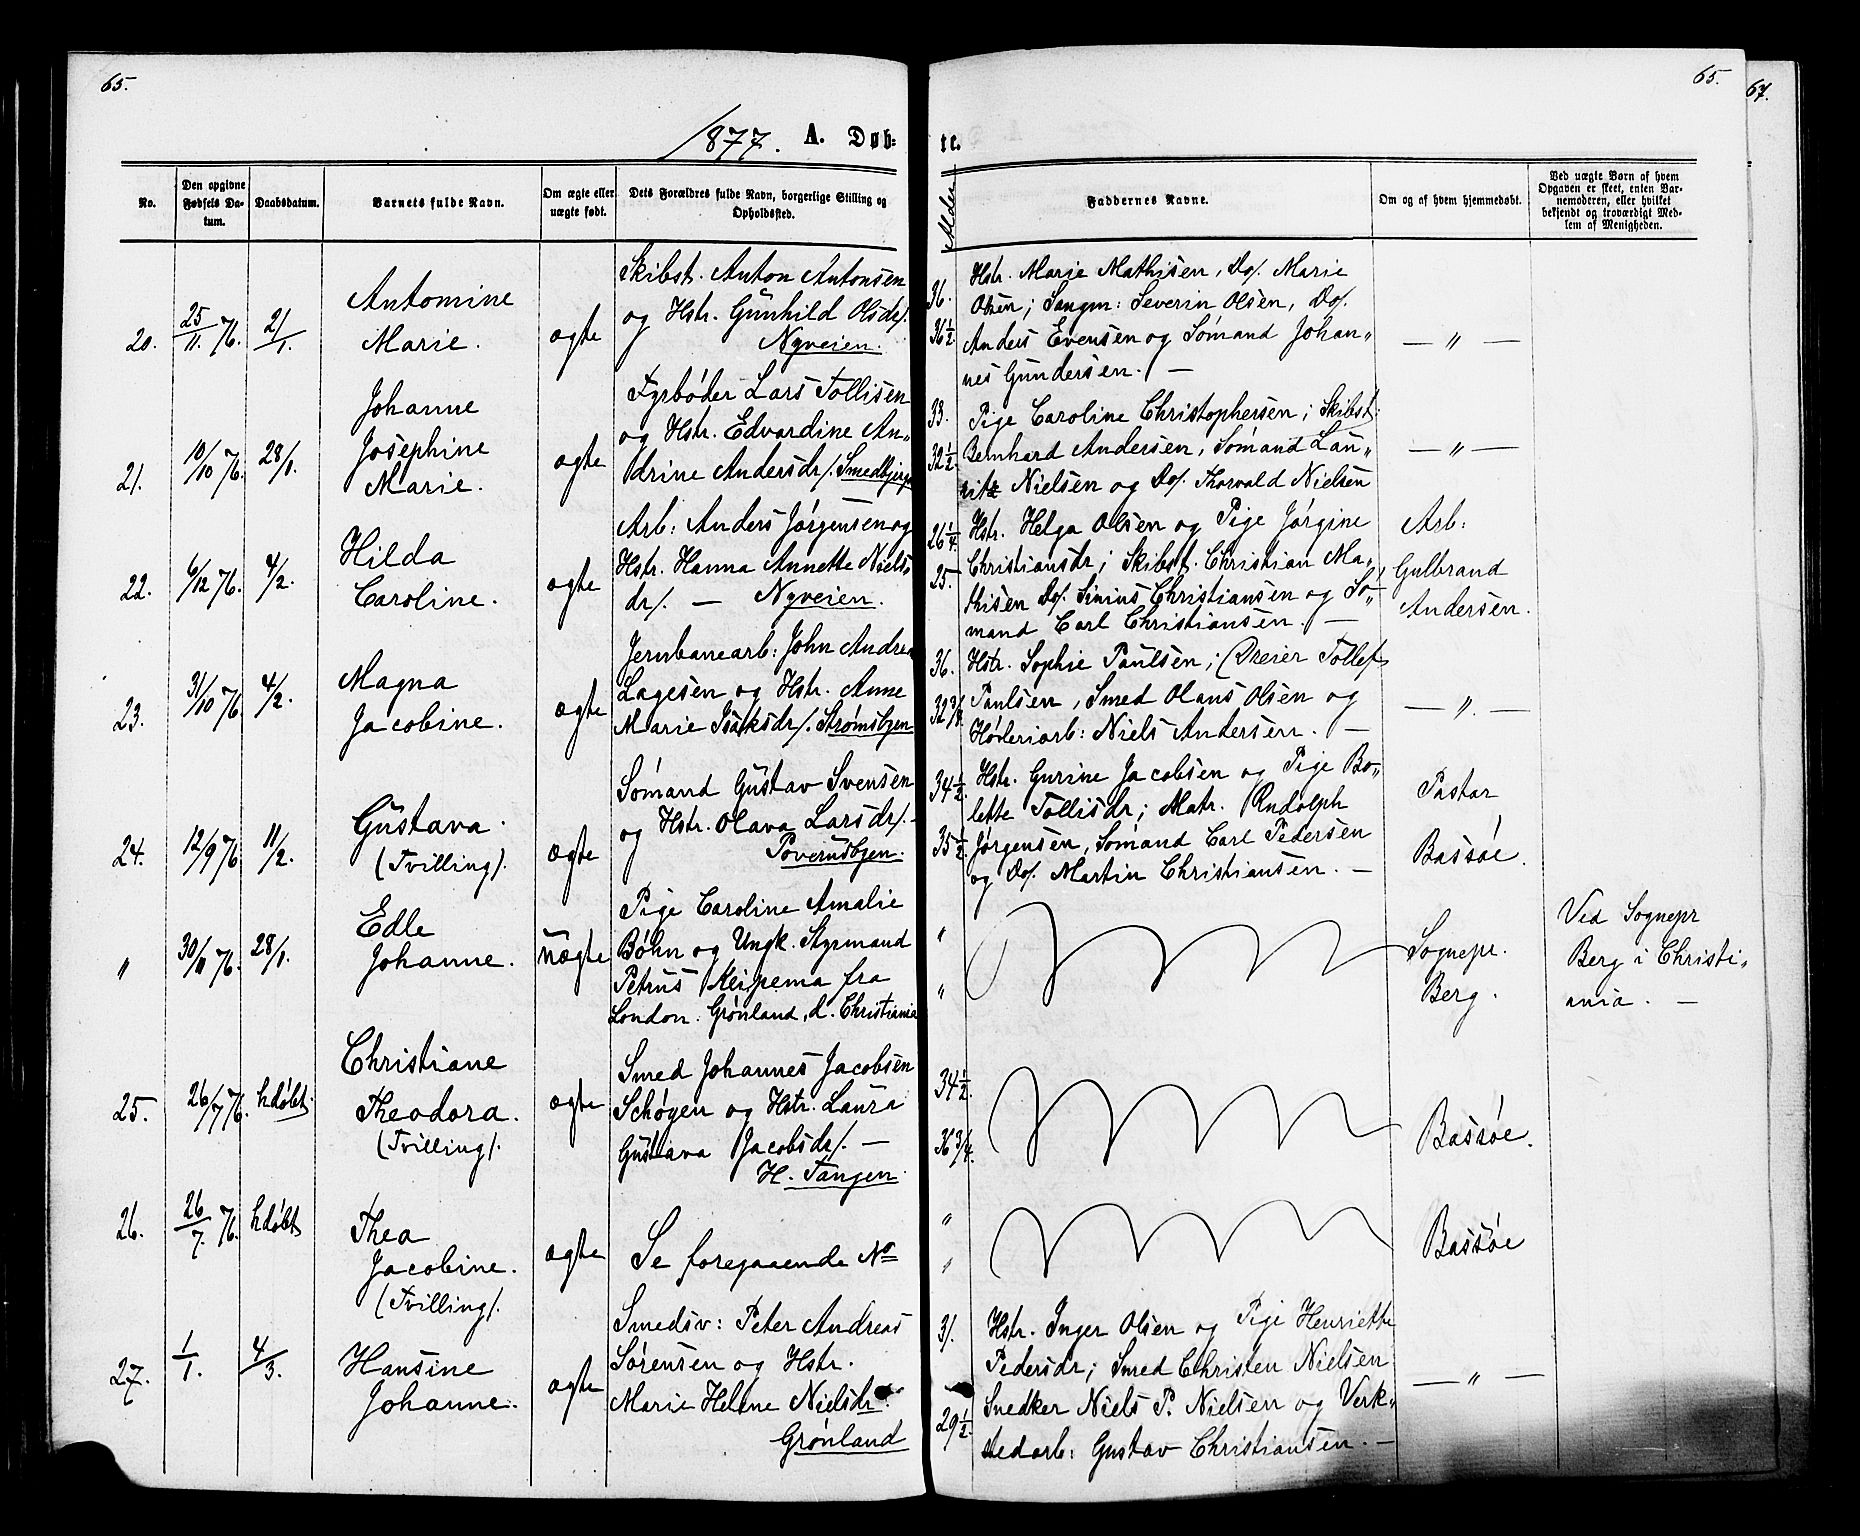 65.
65.
67.
1877. A. Døb-
te.
No.
Den opgivne
Fødsels Da-
tum.
Daabsdatum.
Barnets fulde Navn.
Om ægte eller
uægte født.
Dets Forældres fulde Navn, borgerlige Stilling og
Opholdssted.
Alder
Faddernes Navne.
Om og af hvem hjemmedøbt.
Ved uægte Børn af hvem
Opgaven er skeet, enten Bar-
nemoderen, eller hvilket
bekjendt og troværdigt Med-
lem af Menigheden.
20.
25/11 76.
21/1.
Antomine
Marie.
ægte
Skibst. Anton Antonsen
og Hstr. Gunhild Olsdr/.
Nyveien.
36.
36 1/2.
Hstr. Marie Mathisen, Do/. Marie
Olsen; Saugm: Severin Olsen, Do/.
Anders Evensen og Sømand Johan„
nes Gundersen. —
— „ —
21.
10/10 76.
28/1.
Johanne
Josephine
Marie.
ægte
Fyrbøder Lars Tollisen
og Hstr. Edvardine An„
drine Andersdr/. Smedbjerge
33.
32 1/2.
Pige Caroline Christophersen; Skibst:
Bernhard Andersen, Sømand Lau„
ritz Nielsen og Do/. Thorvald Nielsen
— „ —
22.
6/12 76.
4/2.
Hilda
Caroline.
ægte
Arb: Anders Jørgensen og
Hstr. Hanna Annette Niels„
dr/. — Nyveien.
26 1/4.
25.
Hstr. Helga Olsen og Pige Jørgine
Christiansdr; Skibst. Christian Ma„
thisen Do/. Sinius Christiansen og Sø„
mand Carl Christiansen. —
Arb:
Gulbrand
Andersen.
23.
31/10 76.
4/2.
Magna
Jacobine.
ægte
Jernbanearb: John Andrea
Lagesen og Hstr. Anne
Marie Isaksdr/. Strømsbyen
36.
32 3/8.
Hstr. Sophie Paulsen; Dreier Tollef
Paulsen, Smed Olaus Olsen og
Høvleriarb: Niels Andersen. —
— „ —
24.
12/9 76.
11/2.
Gustava.
(Tvilling).
ægte
Sømand Gustav Svensen
og Hstr. Olava Larsdr/. -
Povernsbyen.
34 1/2.
35 1/2.
Hstr. Gurine Jacobsen og Pige Bo„
lette Tollisdr; Matr. Rudolph
Jørgensen, Sømand Carl Pedersen
og Do/. Martin Christiansen. —
Pastor
Bassøe.
„
30/11 76.
28/1.
Edle
Johanne.
uægte
Pige Caroline Amalie
Bøhn og Ungk. Styrmand
Petrus Keipema fra
London. Grønland, d. Christiania
„
„
Sognepr.
Berg.
Ved Sognepr
Berg i Christi„
ania. —
25.
26/7 76.
hdøbt.
Christiane
Theodora.
(Tvilling).
ægte
Smed Johannes Jacobsen
Schøyen og Hstr. Laura
Gustava Jacobsdr/. —
H. Tangen.
34 1/2.
36 3/4.
Bassøe.
26.
26/7. 76.
hdøbt
Thea
Jacobine.
(Tvilling).
ægte
Se foregaaende No
„
„
Bassøe
27.
1/1.
4/3.
Hansine
Johanne.
ægte
Smedsv: Peter Andreas
Sørensen og Hstr.
Marie Helene Nielsdr.
Grønland
31.
29 1/2.
Hstr. Inger Olsen og Pige Henriette
Pedersdr; Smed Christen Nielsen
Snedker Niels P. Nielsen og Verk„
stedarb: Gustav Christiansen. —
— „ —